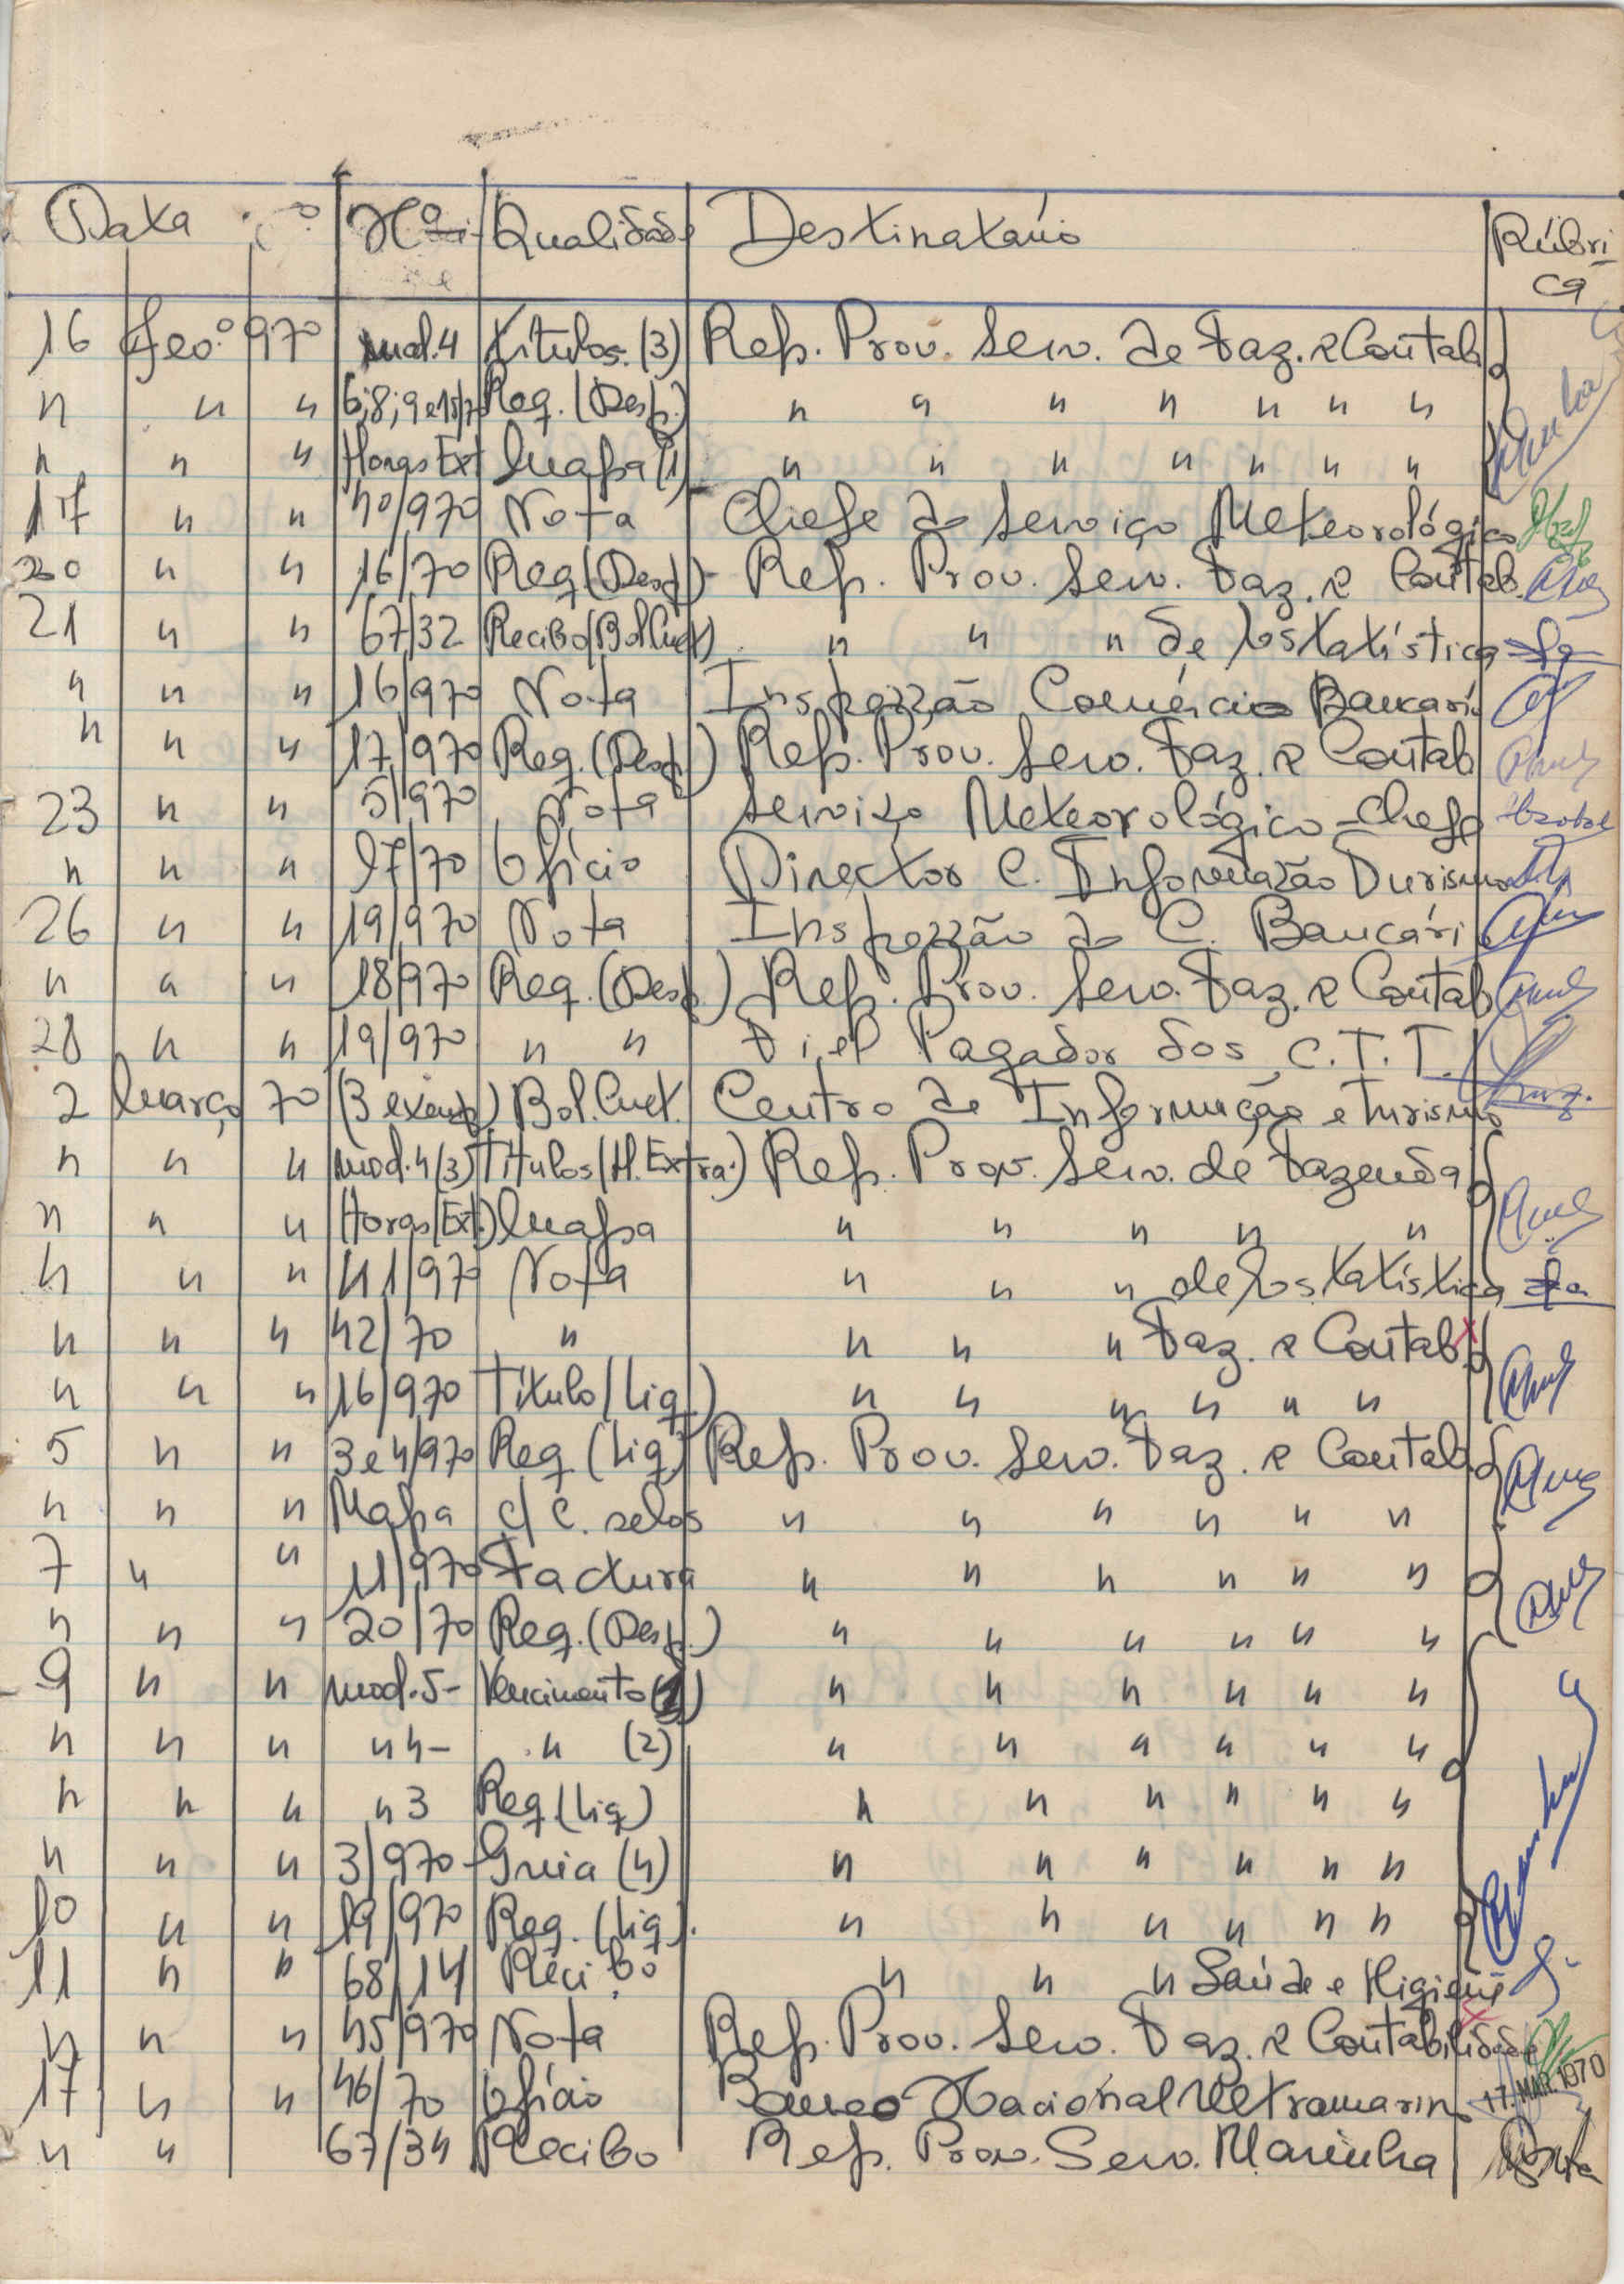 Data Nº Qualidade Destinatário Rúbri-
ca
16 Fev.º 970 mod.4 Títulos (3) Rep. Prov. Serv. de Faz. e Contab.
" " " 6;8;9 e 15/70 Req. (Desp.) " " " " " " "
" " " Horas Ext Mapa (1) " " " " " " "
17 " " 40/970 Nota Chefe do Serviço Meteorológico
20 " " 16/70 Req. (Desp.) Rep. Prov. Serv. Faz. e Contab.
21 " " 67/32 Recibo (Bol. Cuet) " " " de Estatística
" " " 16/970 Nota Inspecção Comércio Bancári
" " " 17/970 Req. (Desp.) Rep. Prov. Serv. Faz. e Contab
23 " " 5/970 Nota Serviço Meteorológico - Chefe
" " " 97/70 Ofício Director C. Informação Turismo
26 " " 19/970 Nota Inspecção do C. Bancári
" " " 18/970 Req. (Desp.) Rep. Prov. Serv. Faz. e Contab
28 " " 19/970 " " Fiel Pagador dos C.T.T.
2 Março 70 (3 exemp.) Bol. Cuet. Centro de Informação e Turismo
" " " mod.4 (3) Títulos (H. Extra.) Rep. Prov. Serv. de Fazenda
" " " Horas (Ext.) Mapa " " " " "
" " " 41/970 Nota " " " de Estatística
" " " 42/70 " " " " Faz. e Contab.
" " " 16/970 Título (Liq.) " " " " " "
5 " " 3 e 4/970 Req. (Liq.) Rep. Prov. Serv. Faz. e Contab.
" " " Mapa c/ C. selos " " " " " "
7 " " 11/970 Factura " " " " " "
" " " 20/70 Req. (Desp.) " " " " " "
9 " " mod.5- Vencimento " " " " " "
" " " " 4- " (2) " " " " " "
" " " " 3 Req. (Liq.) " " " " " "
" " " 3/970 - Guia (4) " " " " " "
10 " " 19/970 Req. (Liq.). " " " " " "
11 " " 68/14 Recibo " " " Saúde e Higiene
" " " 45/970 Nota Rep. Prov. Serv. Faz. e Contabilidade
17 " " 46/70 Ofício Banco Nacional Ultramarino 17. MAR. 1970
" " 67/34 Recibo Rep. Prov. Serv. Marinha